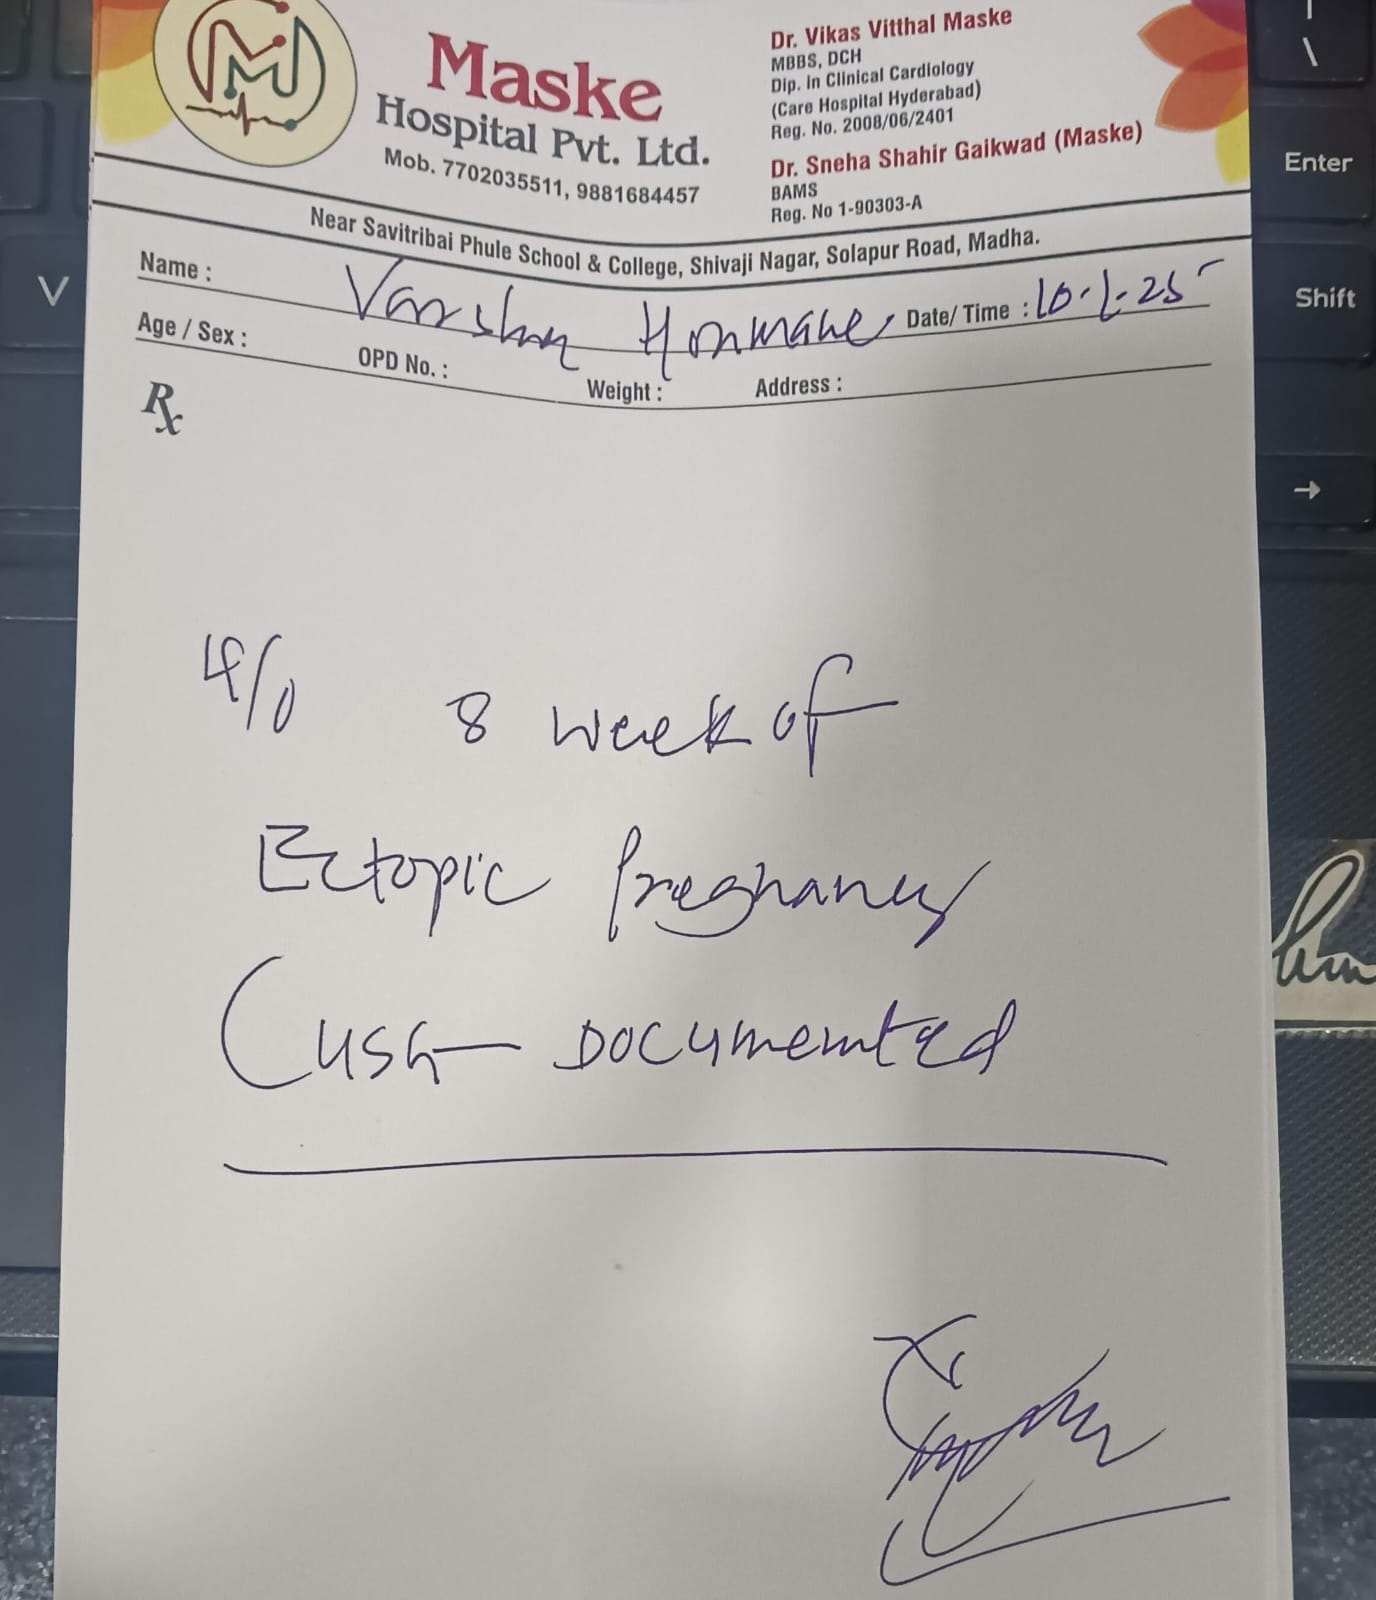 Maske
Hospital Pvt. Ltd.
Mob. 7702035511, 9881684457
Dr. Vikas Vitthal Maske
MBBS, DCH
Dip. in Clinical Cardiology
(Care Hospital Hyderabad)
Reg. No. 2008/06/2401
Dr. Sneha Shahir Gaikwad (Maske)
BAMS
Reg. No 1-90303-A
Near Savitribai Phule School & College, Shivaji Nagar, Solapur Road, Madha.
Name : Varsha Honmane Date/ Time : 10.1.25
Age / Sex : OPD No. : Weight : Address :
Rx
8 week of
Ectopic Pregnancy
(USG Documemted
V
\
Enter
Shift
→